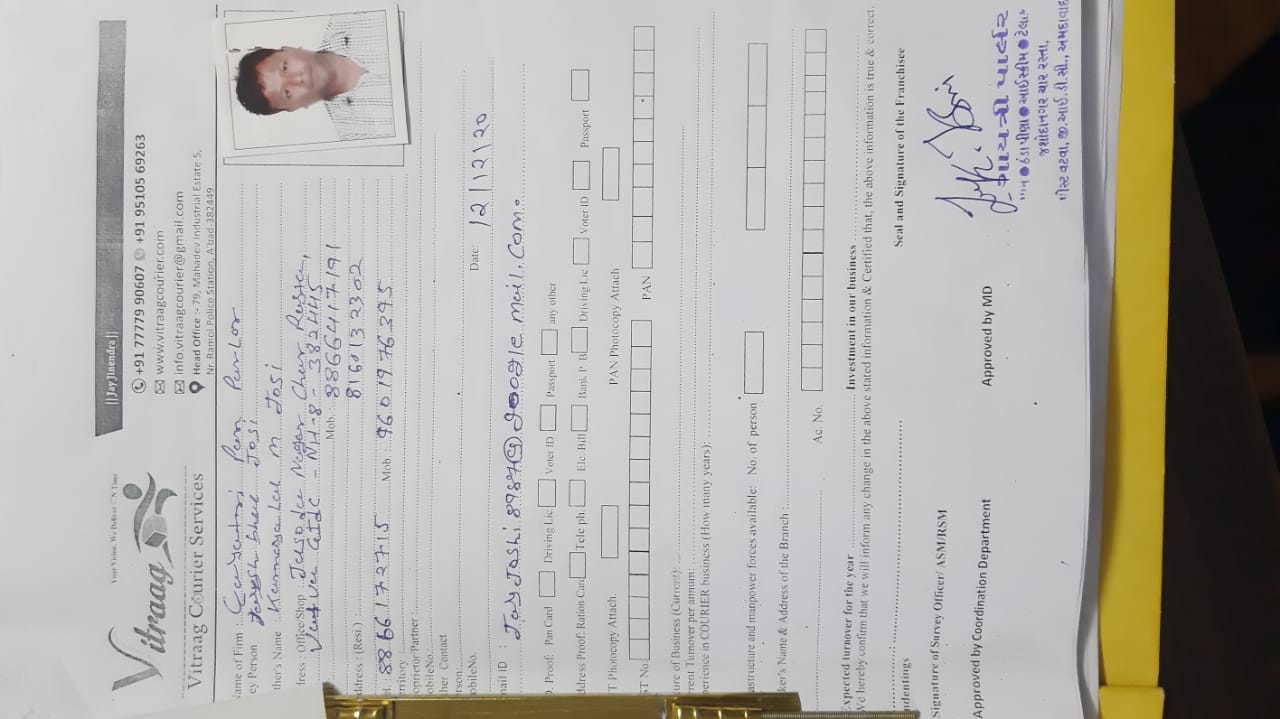 ||JayJinendra||
Your Vision, We Deliver ON Time
Vitraag
Vitraag Courier Services
+91 77779 90607 +91 95105 69263
www.vitraagcourier.com
info.vitraagcourier@gmail.com
Head Office :- 79, Mahadev Industrial Estate-5,
Nr. Ramol Police Station, A'bad-382449
ame of Firm : Gayatri Pan Parlor
ey Person Jayesh bhai Josi
ther's Name : M Josi
dress : Office/Shop : Jasoda Nagar Char Rasta,
Vatva GIDC - NH-8 - 382445
Mob. : 8866417191
ddress : (Resi.) 8160132302
el. 8866172715 Mob : 9601976395
erritory :
oprietor/Partner :
obileNo.
her Contact
erson:
obileNo. Date: 12/12/20
mail ID : JayJoshi8987@googlemail.com.
D. Proof: Pan Card Driving Lic Voter ID Passport any other
ddress Proof: Ration Card Tele ph. Elc. Bill Bank P B Driving Lic Voter ID Passport
T Photocopy Attach. PAN Photocopy Attach
ST No. PAN
ture of Business (Currenty:
rrent Turnover per annum:
perience in COURIER business (How many years):
astructure and manpower forces available: No. of person
ker's Name & Address of the Branch :
Ac. No.
Expected turnover for the year Investment in our business
We hereby confirm that we will inform any change in the above stated information & Certified that, the above information is true & correct.
ndentings
Seal and Signature of the Franchisee
Signature of Survey Officer/ ASM/RSM
Approved by Coordination Department Approved by MD
ગાયત્રી પાર્લર
પાન ● ઠંડાપીણા ● આઈસ્ક્રીમ ●
જશોદાનગર ચાર રસ્તા,
પોસ્ટ વટવા, જી.આઈ.ડી.સી., અમદાવાદ